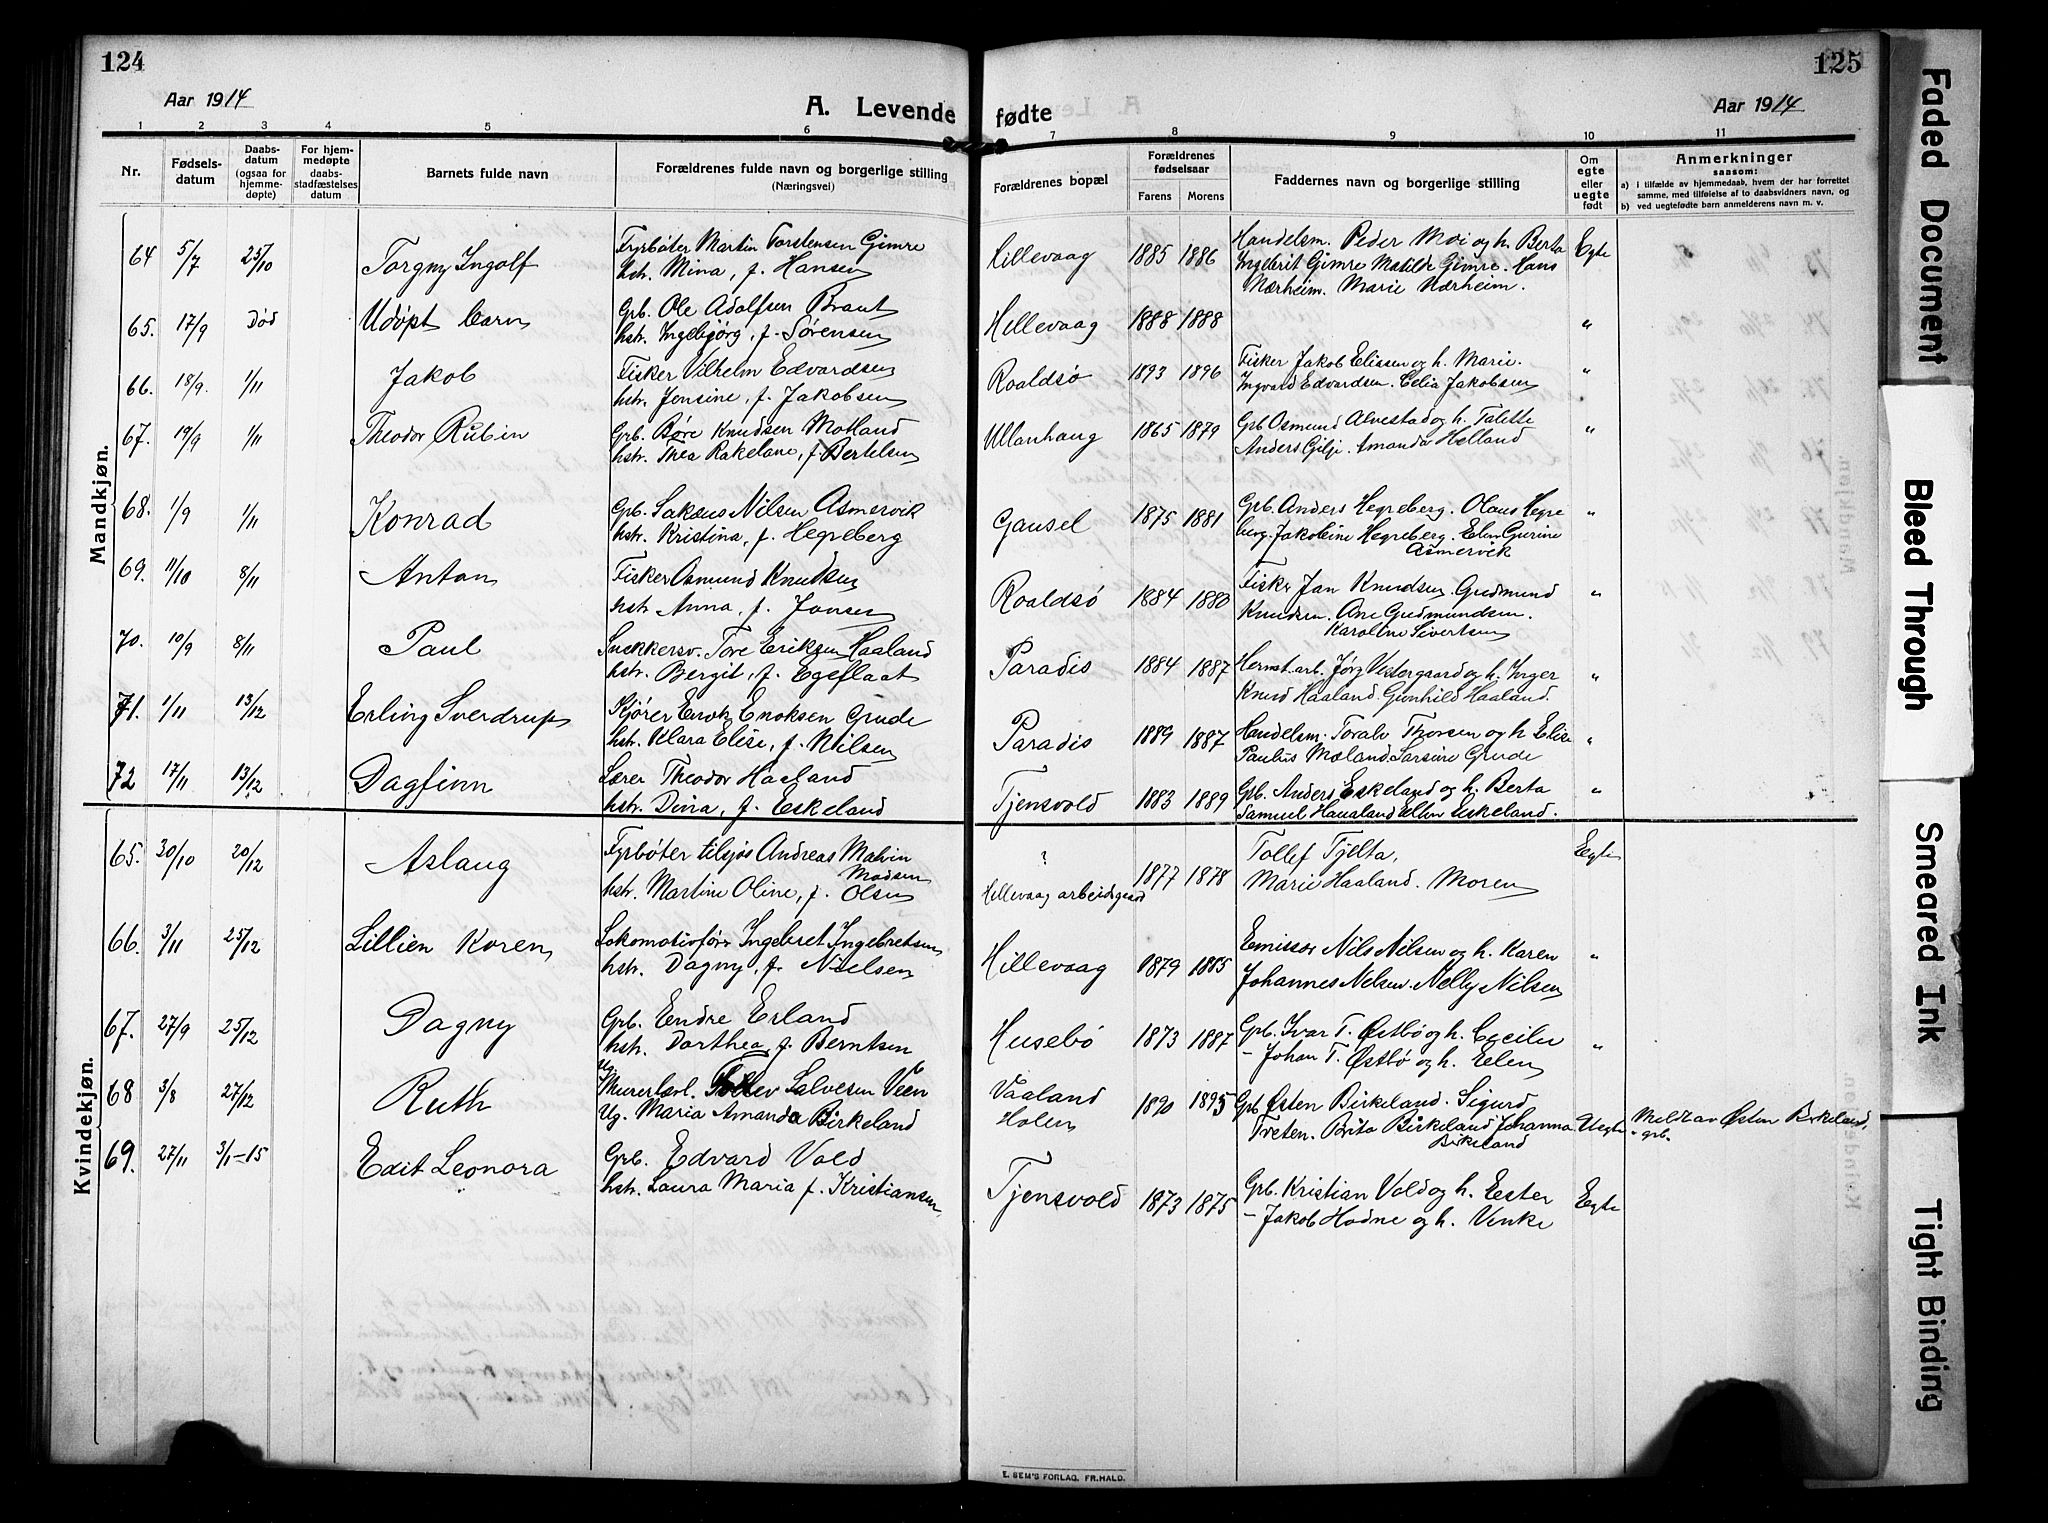 124
Aar 1914
A. Levende
1 2 3 4 5 6
Nr.
Fødsels-
datum
Daabs-
datum
(ogsaa for
hjemme-
døpte)
For hjem-
medøpte
daabs-
stadfæstelses
datum
Barnets fulde navn
Forældrenes fulde navn og borgerlige stilling
(Næringsvei)
Mandkjøn.
64 5/7 25/10 Torgny Ingolf
Fyrbøter Martin Torstensen Gimre
hstr. Mina, f. Hansen
65. 17/9 Død Udøpt barn
Grb. Ole Adolfsen Braut
hstr. Ingebjørg, f. Sørensen
66. 18/9. 1/11 Jakob
Fisker Vilhelm Edvardsen
hstr. Jensine, f. Jakobsen
67. 19/9 1/11 Theodor Rubin
Grb. Børe Knudsen Motland
hstr. Thea Rakeline, f. Bertelsen
68. 1/9 1/11 Konrad
Grb. Sakæus Nilsen Asmervik
hstr. Kristina, f. Hegreberg
69. 11/10 8/11 Anton
Fisker Asmund Knudsen
hstr. Anna, f. Jansen
70. 10/9 8/11 Paul
Snekkersv. Tore Eriksen Haaland
hstr. Bergit, f. Egeflaat
71. 1/11 13/12 Erling Sverdrup
Kjører Enok Enoksen Grude
hstr. Klara Elise, f. Nilsen
72 17/11 13/12 Dagfinn
Lærer Theodor Haaland
hstr. Dina, f. Eskeland
Kvindekjøn.
65. 30/10 20/12 Aslaug
Fyrbøter tilsjøs Andreas Malvin
Madsen
hstr. Martine Oline, f. Olsen
66. 3/11 25/12 Lillien Koren
Lokomotivfører Ingebret Ingebretsen
hstr. Dagny, f. Nielsen
67. 27/9 25/12 Dagny
Grb. Endre Erland
hstr. Dorthea f. Berntsen
68 3/8 27/12 Ruth
Ug.
Murerlærl. Tollev Salvesen Veen
Ug. Maria Amanda Birkeland
69. 27/11 3/1-15 Edit Leonora
Grb. Edvard Vold
hstr. Laura Maria f. Kristiansen
125
fødte
Aar 1914
7 8 9 10 11
Forældrenes bopæl
Forældrenes
fødselsaar
Farens Morens
Faddernes navn og borgerlige stilling
Om
egte
eller
uegte
født
Anmerkninger
saasom:
a) i tilfælde av hjemmedaab, hvem der har forrettet
samme, med tilføielse af to daabsvidners navn, og
b) ved uegtefødte barn anmelderens navn m. v.
Hillevaag 1885 1886
Handelsm. Peder Moi og h. Berta
Ingebrit Gimre Matilde Gimre. Hans
Nærheim. Marie Nærheim.
Egte
Hillevaag 1888 1888 "
Roaldsø 1893 1896
Fisker Jakob Elissen og h. Marie.
Ingvard Edvardsen. Celia Jakobsen
"
Ullanhaug 1865 1879
Grb Osmund Alvestad og h. Talette
Anders Gilje. Amanda Helland
"
Gausel 1875 1881
Grb. Anders Hegreberg. Olaus Hegre
berg. Jakobine Hegreberg. Elen Gurine
Asmervik
"
Roaldsø 1884 1880
Fisker Jan Knudsen. Gudmund
Knudsen. Ane Gudmundsen.
Karoline Sivertsen
"
Paradis 1884 1887
Hermt. arb. Jørg Vestergaard og h. Inger
Knud Haaland. Gunhild Haaland.
"
Paradis 1889 1887
Handelsm. Toralv Thorsen og h Elise
Paulus Moland. Sarsine Grude
"
Tjensvold 1883 1889
Grb. Anders Eskeland og h. Berta
Samuel Haualand Ellen Eskeland.
"
?
Hillevaag arbeidsgaard
1877 1878
Tollef Tjelta,
Marie Haaland. Moren
Egte
Hillevaag 1879 1885
Emissær Nils Nilsen og h. Karen
Johannes Nilsen. Nelly Nilsen
"
Husebø 1873 1887
Grb. Ivar T. Østbø og h. Cecilie
- Johan T. Østbø og h. Elen
"
Vaaland
Holen
1890 1895
Grb Østen Birkeland. Sigurd
Treten. Brita Birkeland Johanna
Birkeland
Uegte
Meldt av Østen Birkeland,
- grb.
Tjensvold 1873 1875
Grb. Kristian Vold og h. Ester
- Jakob Hodne og h. Venke
Egte
E. SEM'S FORLAG, FR.HALD.
Faded Document
Bleed Through
Smeared Ink
Tight Binding